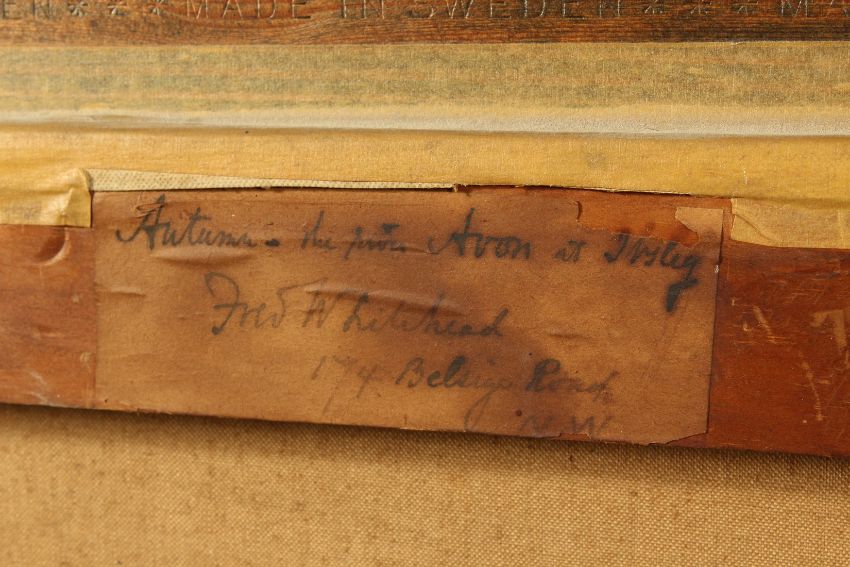 EN * * * MADE IN SWEDEN * * * MA
Autumn - the Avon at
Fred Whitehead
174 Belsize Road
N.W